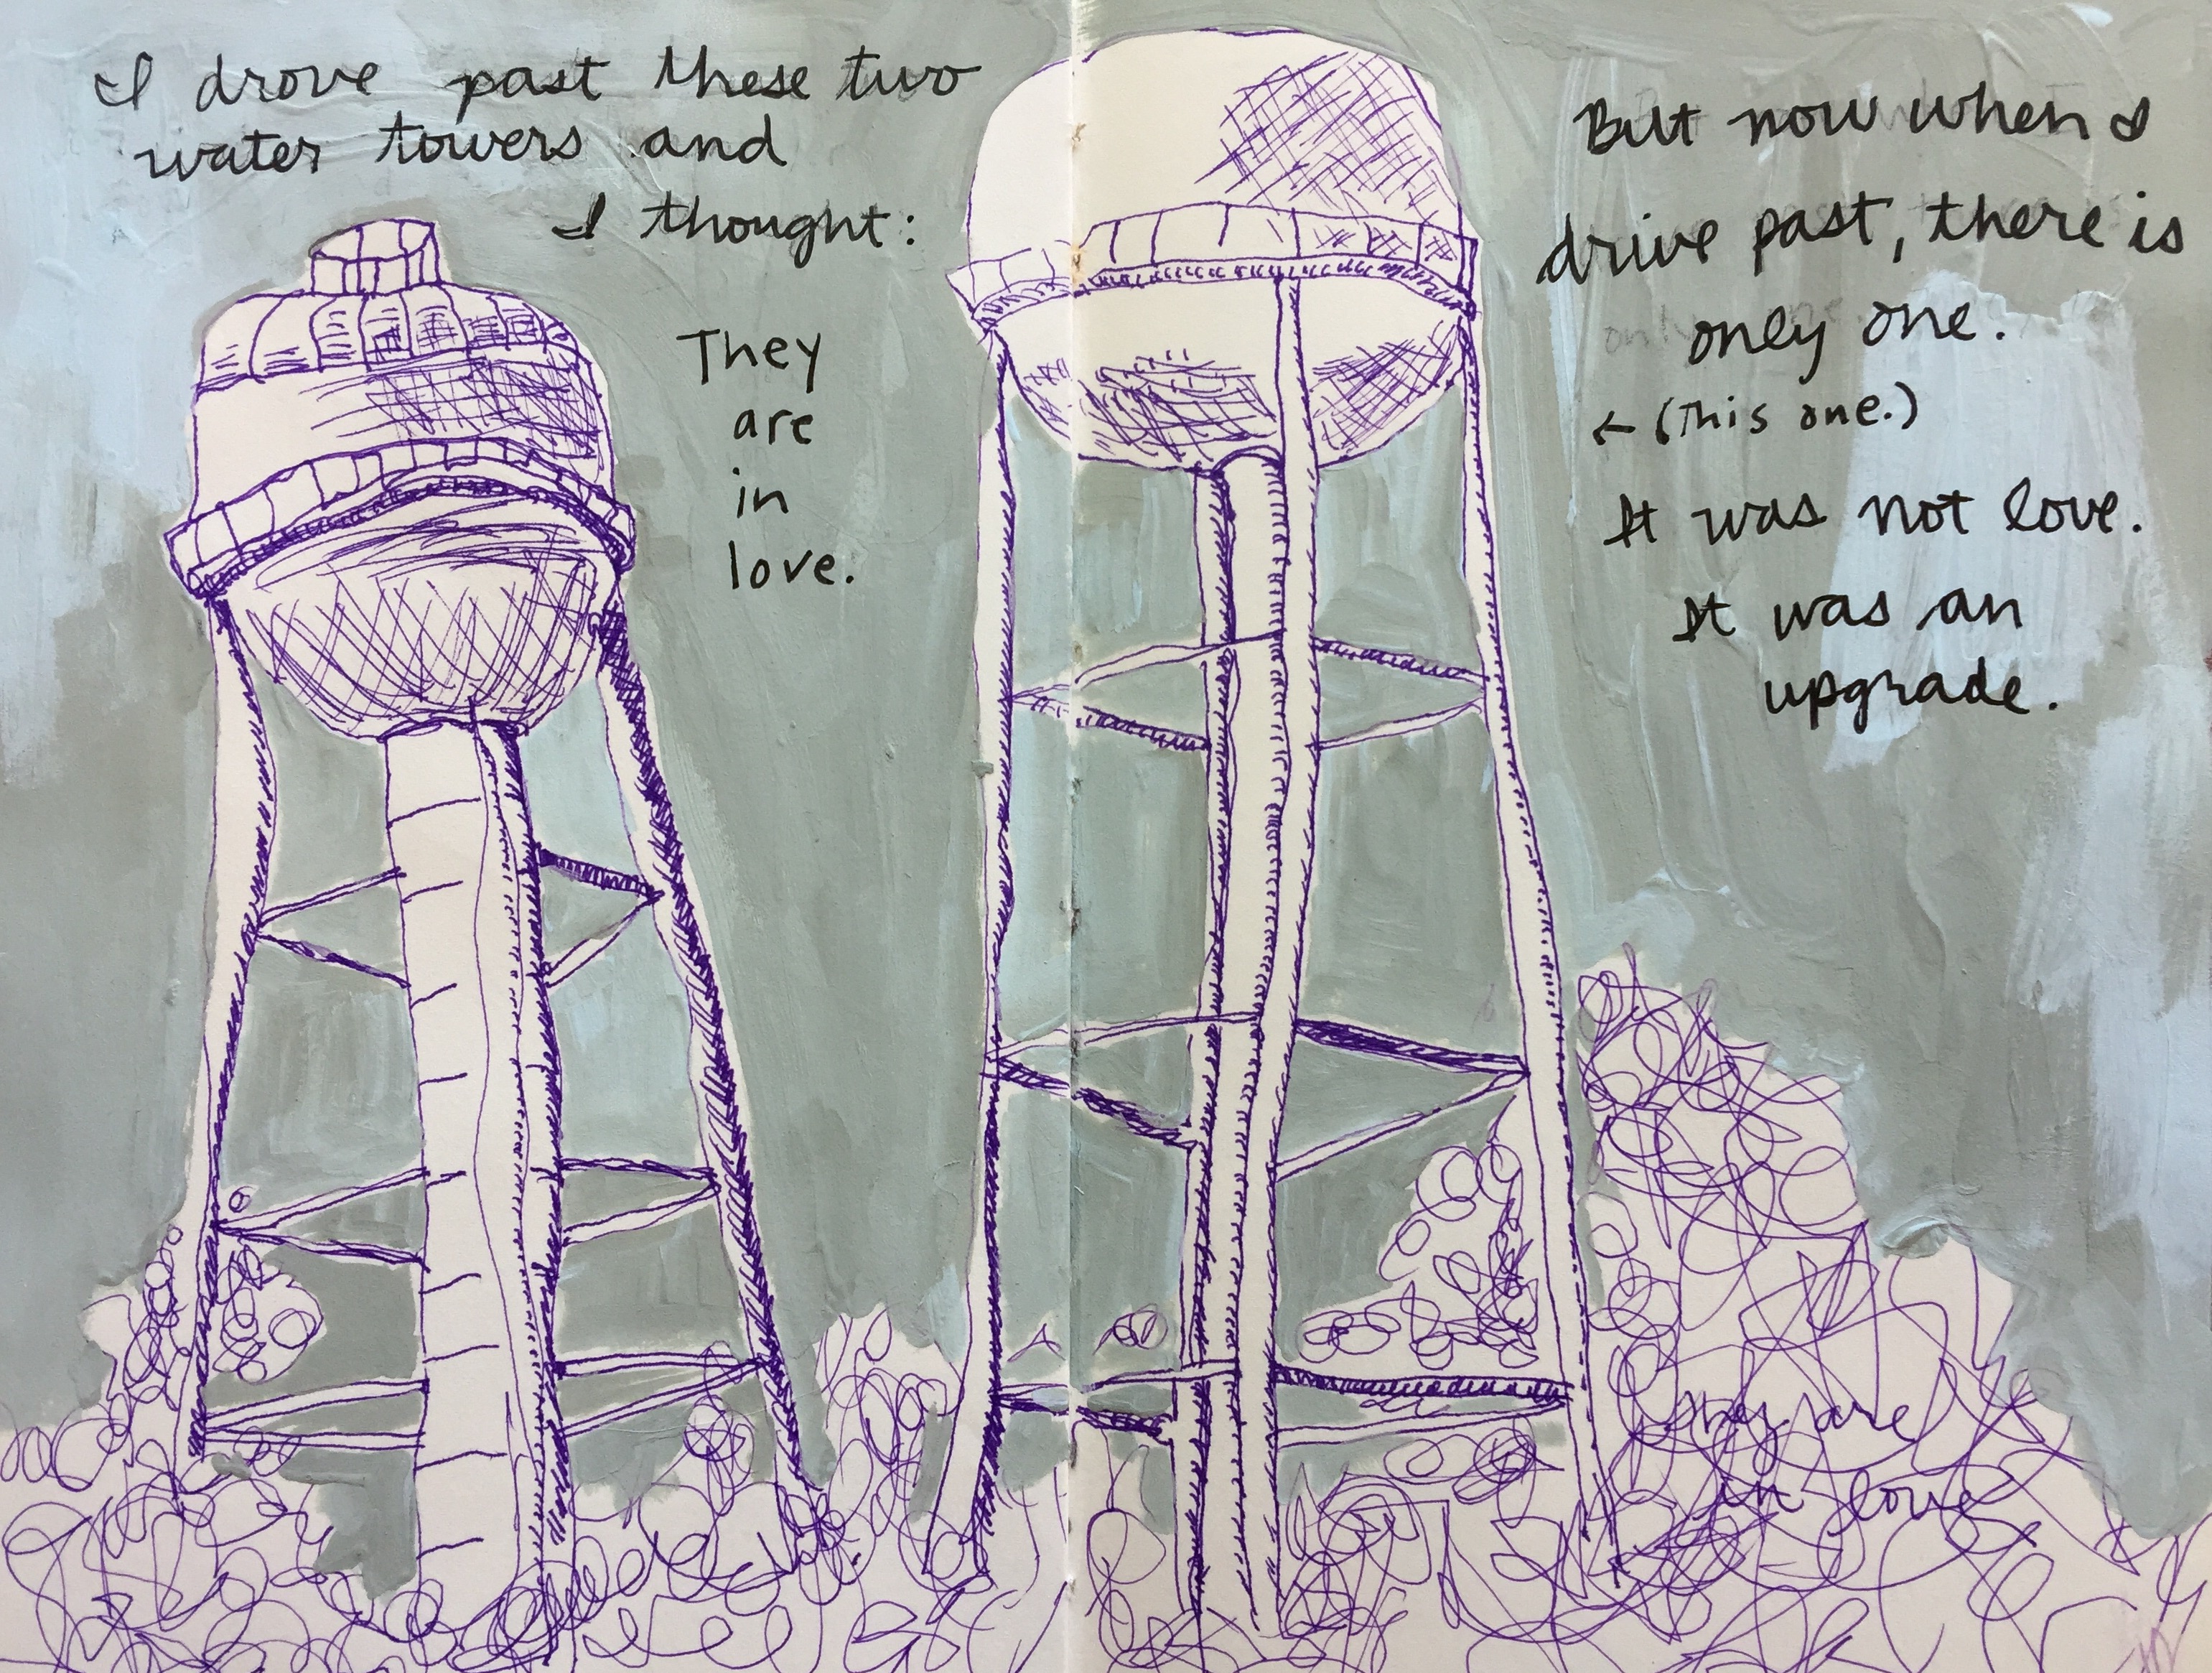 I drove past these two
water towers and
I thought:
They
are
in
love.
But now when I
drive past, there is
only one.
← (This one.)
It was not love.
It was an
upgrade.
are
in love